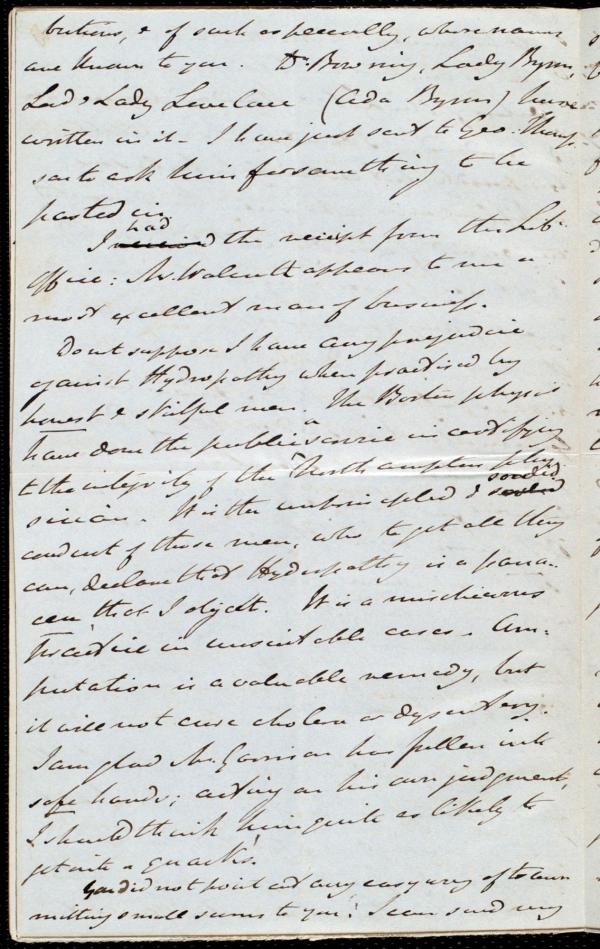 butions, & of such especially, whose names
are known to you. Dr Bowring, Lady Byron,
Lord & Lady Lovelace (Ada Byron) have
written in it - I have just sent to Geo: Thomp-
son to ask him for something to be
pasted in.
I had the receipt from the Lib.
Office: Mr. Walcutt appears to me a
most excellent man of business.
Dont suppose I have any prejudice
against Hydropathy when practised by
honest & skilful men. The Boston physis
have done the public a service in certifying
to the integrity of the Northampton phy-
sician. It is the unprincipled & sordid
conduct of those men, who to get all they
can, declare that Hydropathy is a pana-
cea, that I object. It is a mischievous
practice in unsuitable cases. Am-
putation is a valuable remedy, but
it will not cure cholera or dysentery.
I am glad Mr. Garrison has fallen into
safe hands; acting on his own judgment,
I should think him quite as likely to
get into a quack's.
You did not point out any easy way of
mitting small sums to you. I can send my